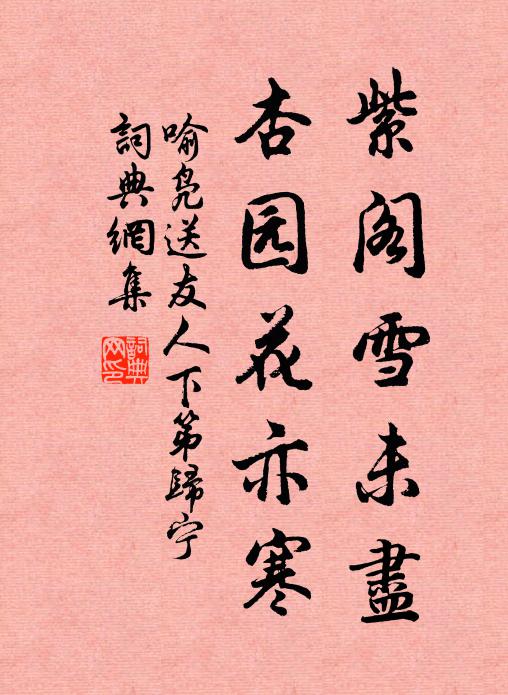 紫阁雪未盡
杏园花亦寒
喻凫送友人下第歸宁
詞典網集
詞典網印